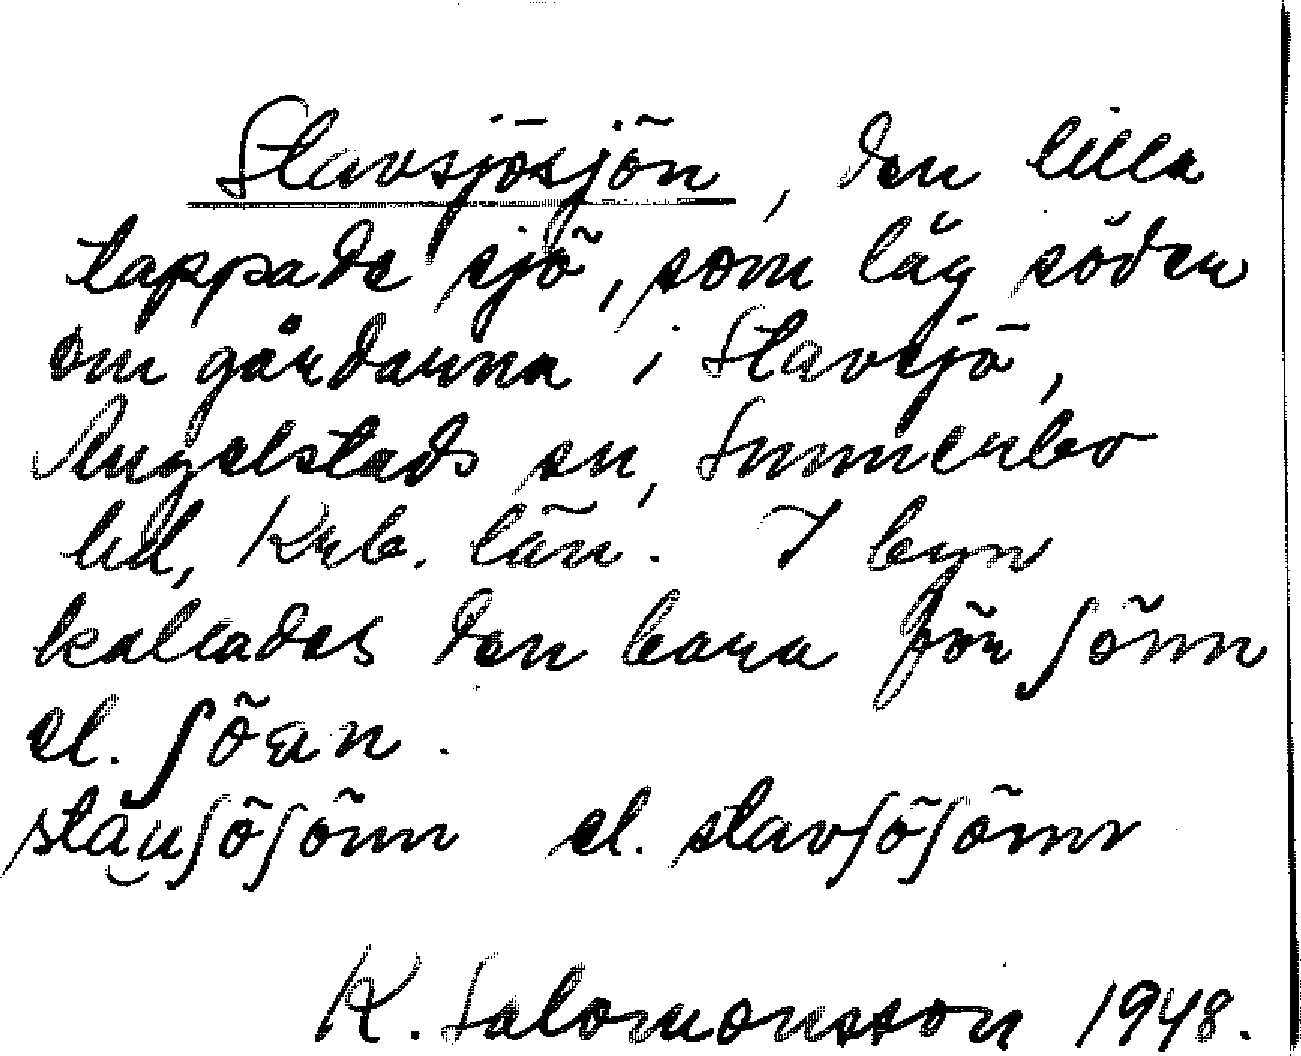 Stavsjösjön, den lilla
tappade sjö, som låg söder
om gårdarna i Stavsjö,
Angelstads sn, Sunnerbo
hd, Krb. län. I byn
kallades den bara för ʃönn
el. ʃöan.
stāu̯ʃöʃönn el. stavʃöʃönn
K. Salomonsson 1948.